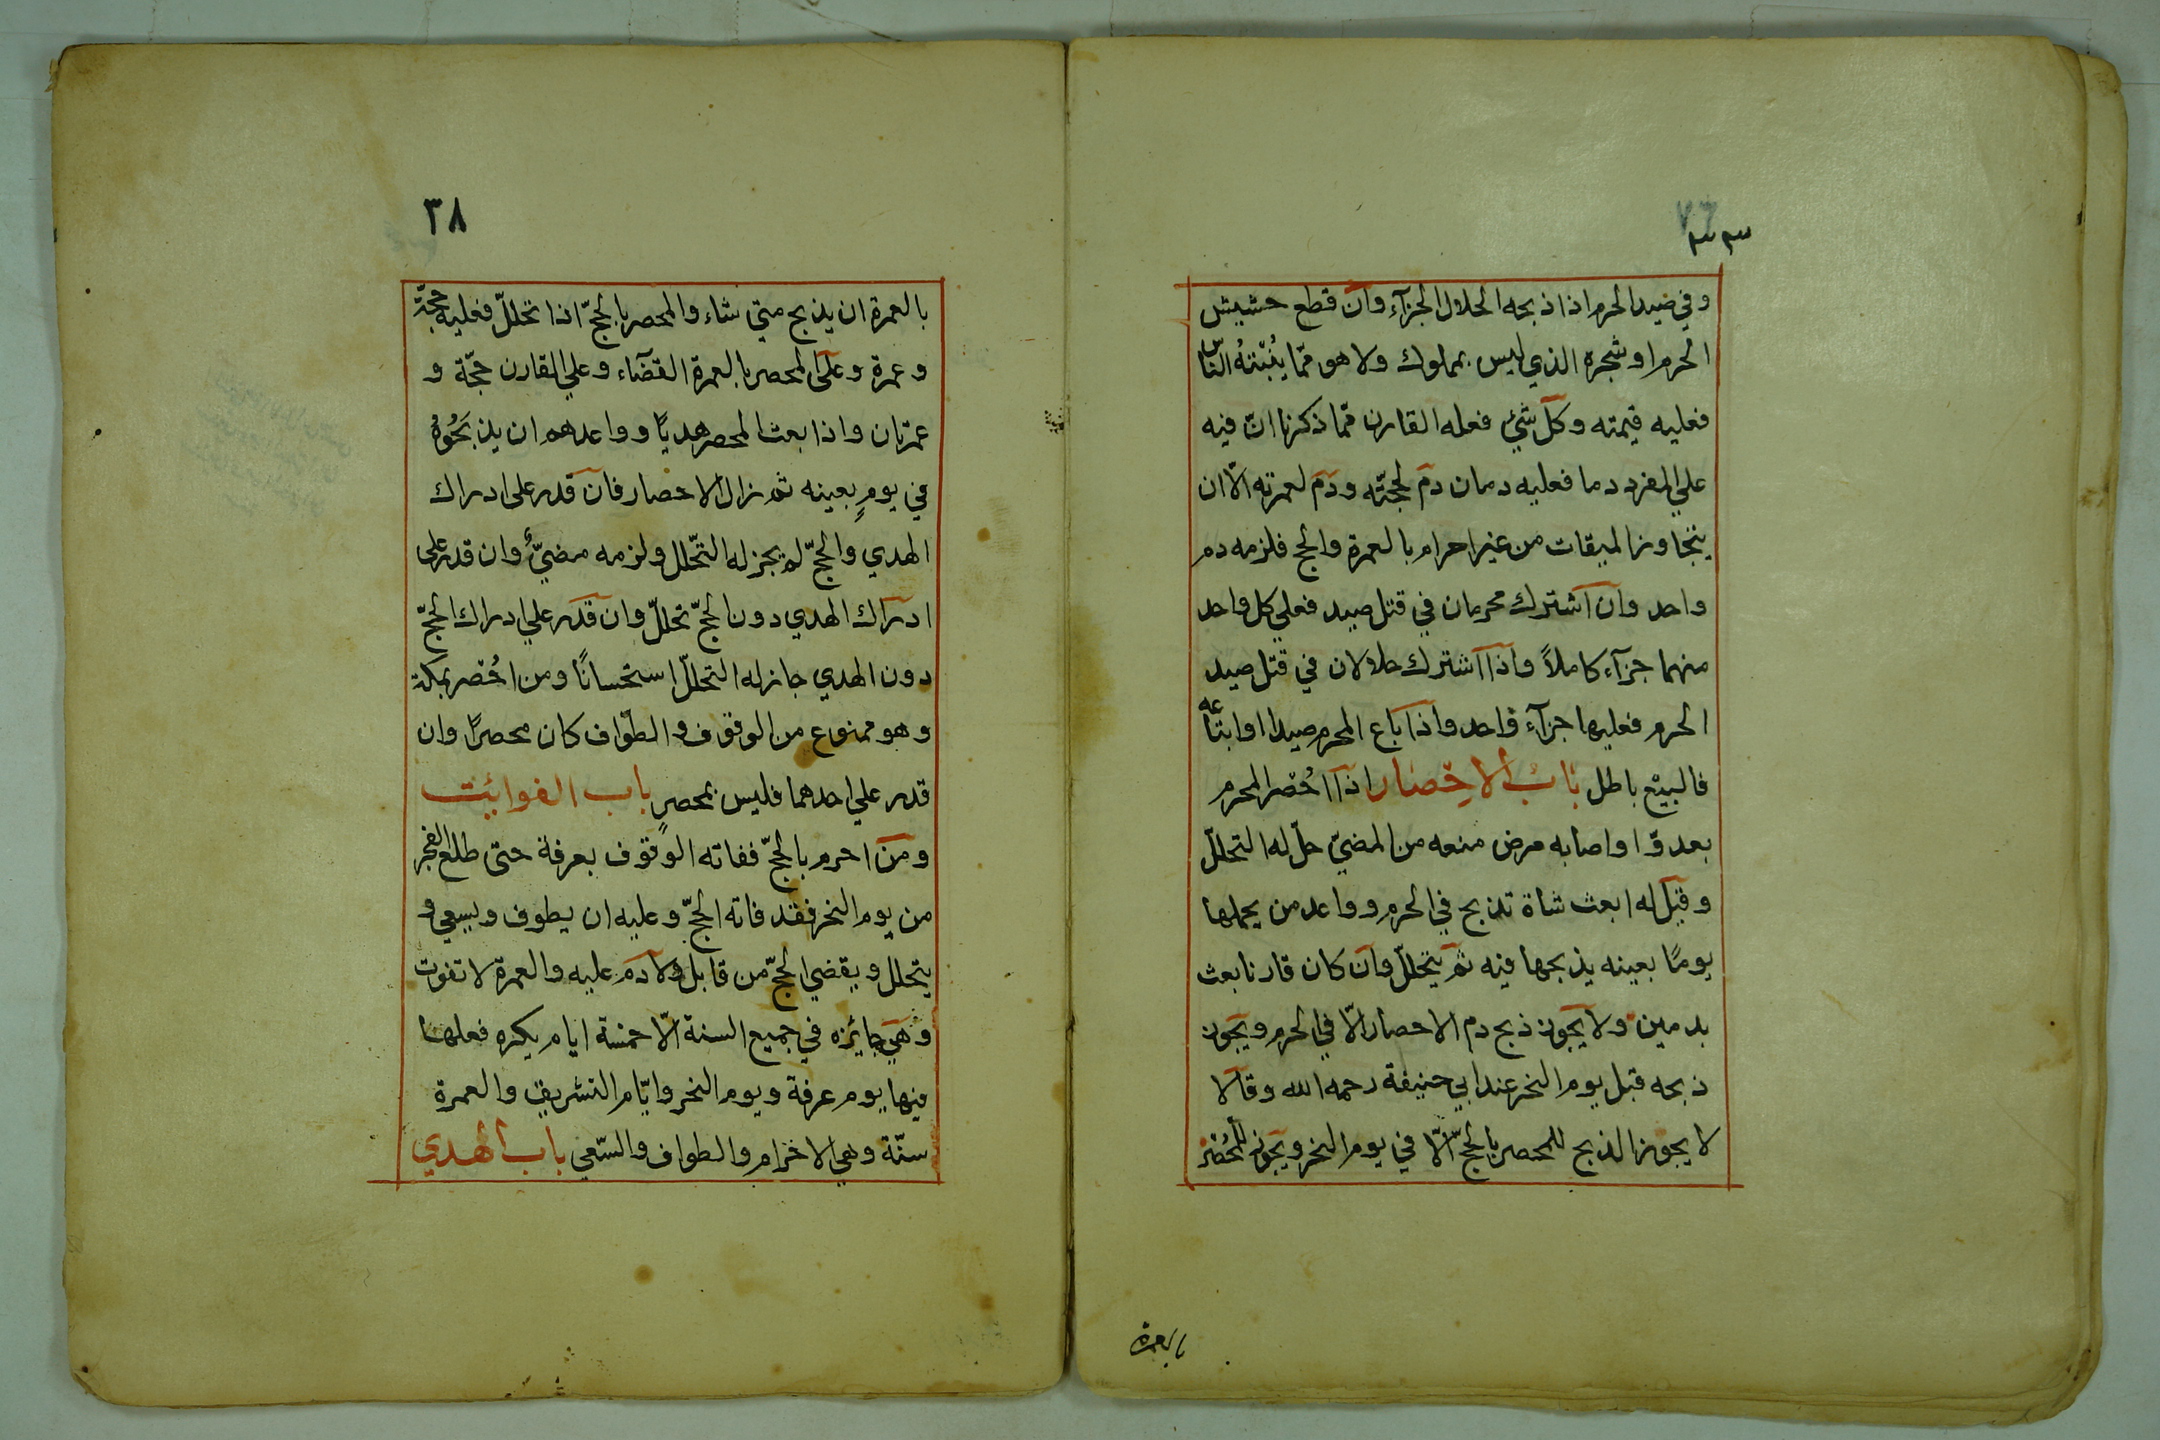 وفي صيد الحرم اذا ذبحه الحلال الجزآء وان قطع حشيش
الحرم او شجره الذي ليس بمملوك ولا هو ممّا يُنْبتهُ النّاس
فعليه قيمته وكل شئ فعله القارن ممّا ذكرنا انّ فيه
علي المفرد دما فعليه دمان دم لحجّته ودم لعمرته الّا ان
يتجاوز الميقات من غير احرام بالعمرة والحج فلزمه دم
واحد وان اشترك محرمان في قتل صيد فعلي كل واحد
منهما جزآء كاملاً واذا اشترك حلالان في قتل صيد
الحرم فعليهما جزآء واحد واذا باع المحرم صيدا او ابتاعه
فالبيع باطل باب الاحصار اذا احُصر المحرم
بعدوّ او اصابه مرض منعه من المضيّ حلّ له التحللّ
وقيل له ابعث شاة تذبح في الحرم وواعد من يحملها
يومًا بعينه يذبحها فيه ثم يتحللّ وان كان قارنا بعث
بدمين ولا يجوز ذبح دم الاحصار الّا في الحرم ويجوز
ذبحه قبل يوم النحر عند ابي حنيفة رحمه الله وقالا
لا يجوز الذبح للمحصر بالحجّ الّا في يوم النحر ويجوز للمُحْصر
بالعمرة
٣٨
بالعمرة ان يذبح متي شاء والمحصر بالحجّ اذا تحللّ فعليه حجّة
وعمرة وعلى المحصر بالعمرة القضاء وعلي القارن حجّة و
عمرتان واذا بعث المحصر هديًا وواعدهم ان يذبحُوهُ
في يومٍ بعينه ثم زال الاحصار فان قدر على ادراك
الهدي والحجّ لم يجز له التحّلل ولزمه مضيّهُ وان قدر على
ادراك الهدي دون الحجّ تحللّ وان قدر علي ادراك الحجّ
دون الهدي جاز له التحللّ استحسانًا ومن احُصر بمكة
وهو ممنوع من الوقوف والطّواف كان محصرًا وان
قدر علي احدهما فليس بمحصرٍ باب الفوائت
ومن احرم بالحجّ ففاته الوقوف بعرفة حتى طلع الفجر
من يوم النحر فقد فاته الحجّ وعليه ان يطوف ويسعي و
يتحلل ويقضي الحجّ من قابل ولا دم عليه والعمرة لا تفوت
وهي جائزه في جميع السنة الّا خمسة ايام يكره فعلها
فيها يوم عرفة ويوم النحر وايّام التشريق والعمرة
سنّة وهي الاحرام والطواف والسّعي باب الهدي